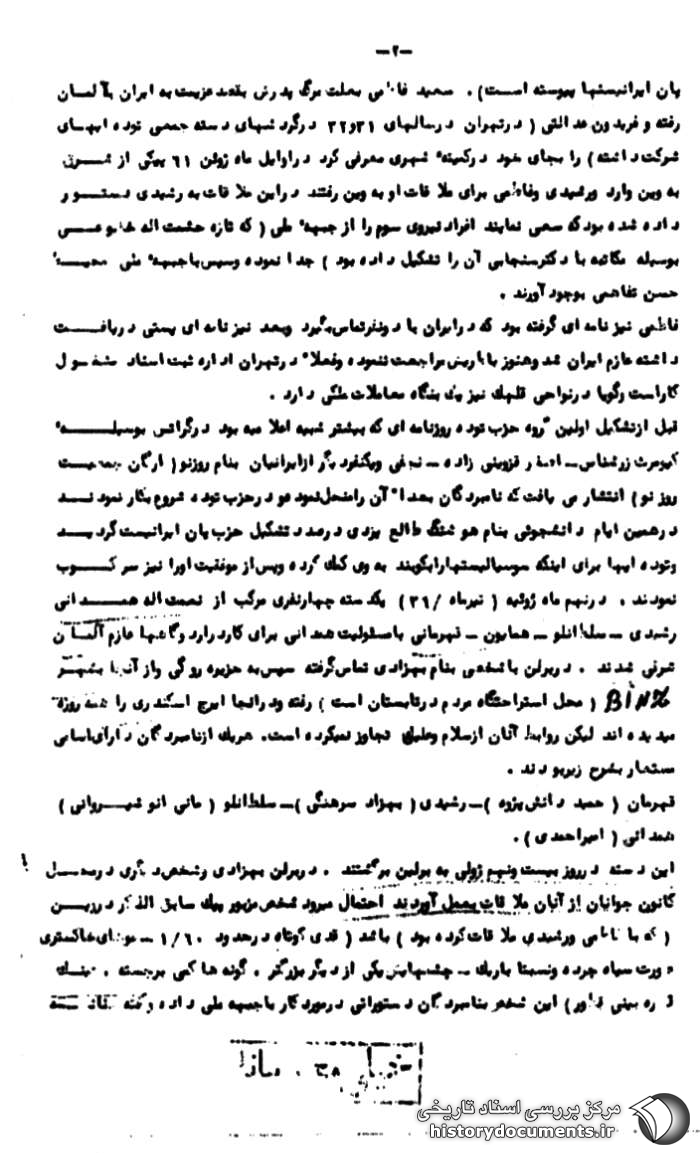 -۲-
پان ایرانیستها پیوسته است) . سعید فاطمی بعلت مرگ پدرش بقصد عزیمت به ایران بآلمان
رفته و فریدون عدالتی ( درتهران درسالهای ۳۱و۳۲ درگردشهای دسته جمعی توده ایهای
شرکت داشته) را بجای خود درکمیته شهری معرفی کرد دراوایل ماه ژوئن ۶۱ پیکی از شرق
به وین وارد ورشیدی وفاطمی برای ملاقات او به وین رفتند دراین ملاقات به رشیدی دستور
داده شده بود که سعی نمایند افراد نیروی سوم را از جبهه ملی ( که تازه حشمت اله
بوسیله مکاتبه با دکترسنجابی آن را تشکیل داده بود ) جدا نموده وسپس باجبهه ملی
حسن تفاهمی بوجود آورند .
فاطمی نیز نامه ای گرفته بود که درایران با دونفرتماس بگیرد وبعد نیز نامه ای پستی دریافت
داشته عازم ایران شد وهنوز بپاریس مراجعت ننموده وفعلا" درتهران اداره ثبت اسناد مشغول
کاراست وگویا درنواحی قلهک نیز یک بنگاه معاملات ملکی دارد .
قبل ازتشکیل اولین گروه حزب توده روزنامه ای که بیشتر شبیه اعلامیه بود درگراتس بوسیله
کیومرث زرشناس - اصغر قزوینی زاده - نجفی ویکنفردیگر ازایرانیان بنام روزنو( ارگان جمعیت
روز نو ) انتشار می یافت که نامبردگان بعدا" آن رامنحل نموده ودرحزب توده شروع بکار نمودند
درهمین ایام دانشجوئی بنام هوشنگ طالع یزدی درصدد تشکیل حزب پان ایرانیست گردید
وتوده ایها برای اینکه سوسیالیستهارابکوبند به وی کمک کرده وپس از موفقیت اورا نیز سرکوب
نمودند . درنهم ماه ژوئیه ( تیرماه /۳۹) یکدسته چهارنفری مرکب از نعمت اله همدانی
رشیدی - سلطانلو - همایون - قهرمانی بامسئولیت همدانی برای عازم آلمان
شرقی شدند . دربرلن باشخصی بنام بهزادی تماس گرفته سپس به جزیره روگی واز آنجا بشهر
BINZ ( محل استراحتگاه مردم درتابستان است ) رفته ودرآنجا ایرج اسکندری را همه روزه
میدیده اند لیکن روابط آنان ازسلام وعلیک تجاوز نمیکرده است. هریک ازنامبردگان دارای اسامی
مستعار بشرح زیربودند .
قهرمان ( حمید دانش پژوه ) - رشیدی ( بهزاد سرهنگی ) - سلطانلو ( مانی انوشیروانی )
همدانی ( امیراحمدی ) .
این دسته درروز بیست ونهم ژولی به برلین برگشتند . دربرلن بهزادی وشخص دیگری درمحل
کانون جوانان از آنان ملاقات بعمل آوردند احتمال میرود شخص مزبور پیک سابق الذکر دروین
( که با فاطمی ورشیدی ملاقات کرده بود ) باشد ( قدی کوتاه درحدود ۱/۶۰ - موهای خاکستری
صورت سیاه چرده ونسبتا باریک - چشمهایش یکی از دیگر بزرگتر . گونه ها کمی برجسته . عینک
ذره بینی ) این شخص بنامبردگان دستوراتی درمورد کار باجبهه ملی داده وگفته
مرکز بررسی اسناد تاریخی
historydocuments.ir